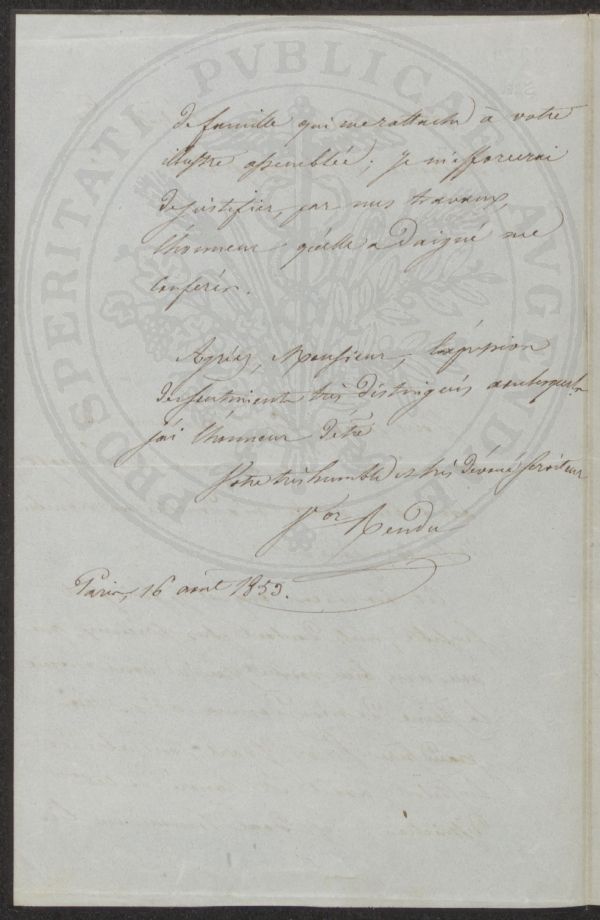 de famille qui me rattache à votre
illustre assemblée; je m'efforcerai
de justifier, par mes travaux,
l'honneur qu'elle a daigné me
conférer.
Agréez, Monsieur, l'expression
des sentiments très distingués avec lesquels
j'ai l'honneur d'être
Votre très humble et très dévoué serviteur
Vor Rendu
Paris, 16 août 1853.
PROSPERITATI PVBLICAE AVGENDAE